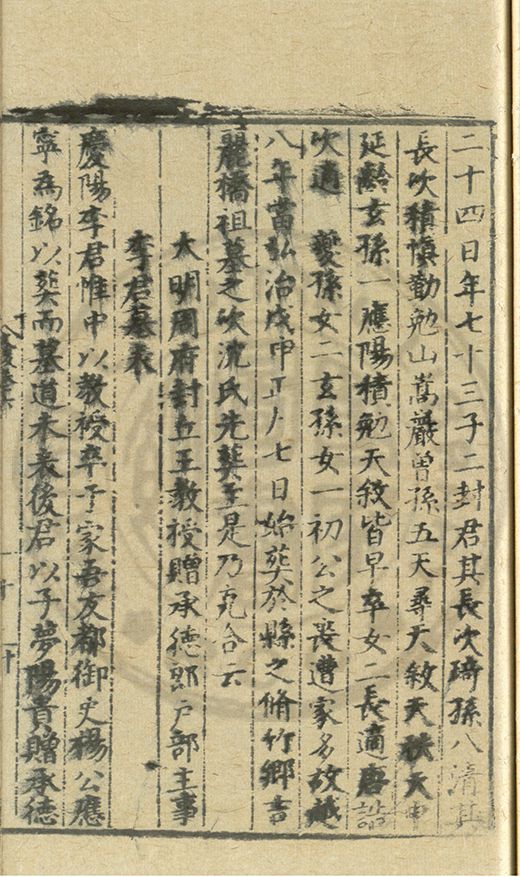 二十四日年七十三子二封君其長次琦孫八清其
長次積慎勤勉山嵩巖曾孫五天尋天敘天秩天申
延齡玄孫一應陽積勉天敘皆早卒女二長適唐誥
次適 夔孫女二玄孫女一初公之喪遭家多故越
八年當弘治戊申正月七日始葬於縣之脩竹鄉吉
麗橋祖墓之次沈氏先葬至是乃克合云
大明周府封丘王教授贈承德郎户部主事
李君墓表
慶陽李君惟中以教授卒于家吾友都御史楊公應
寧為銘以葬而墓道未表後君以子夢陽貴贈承德